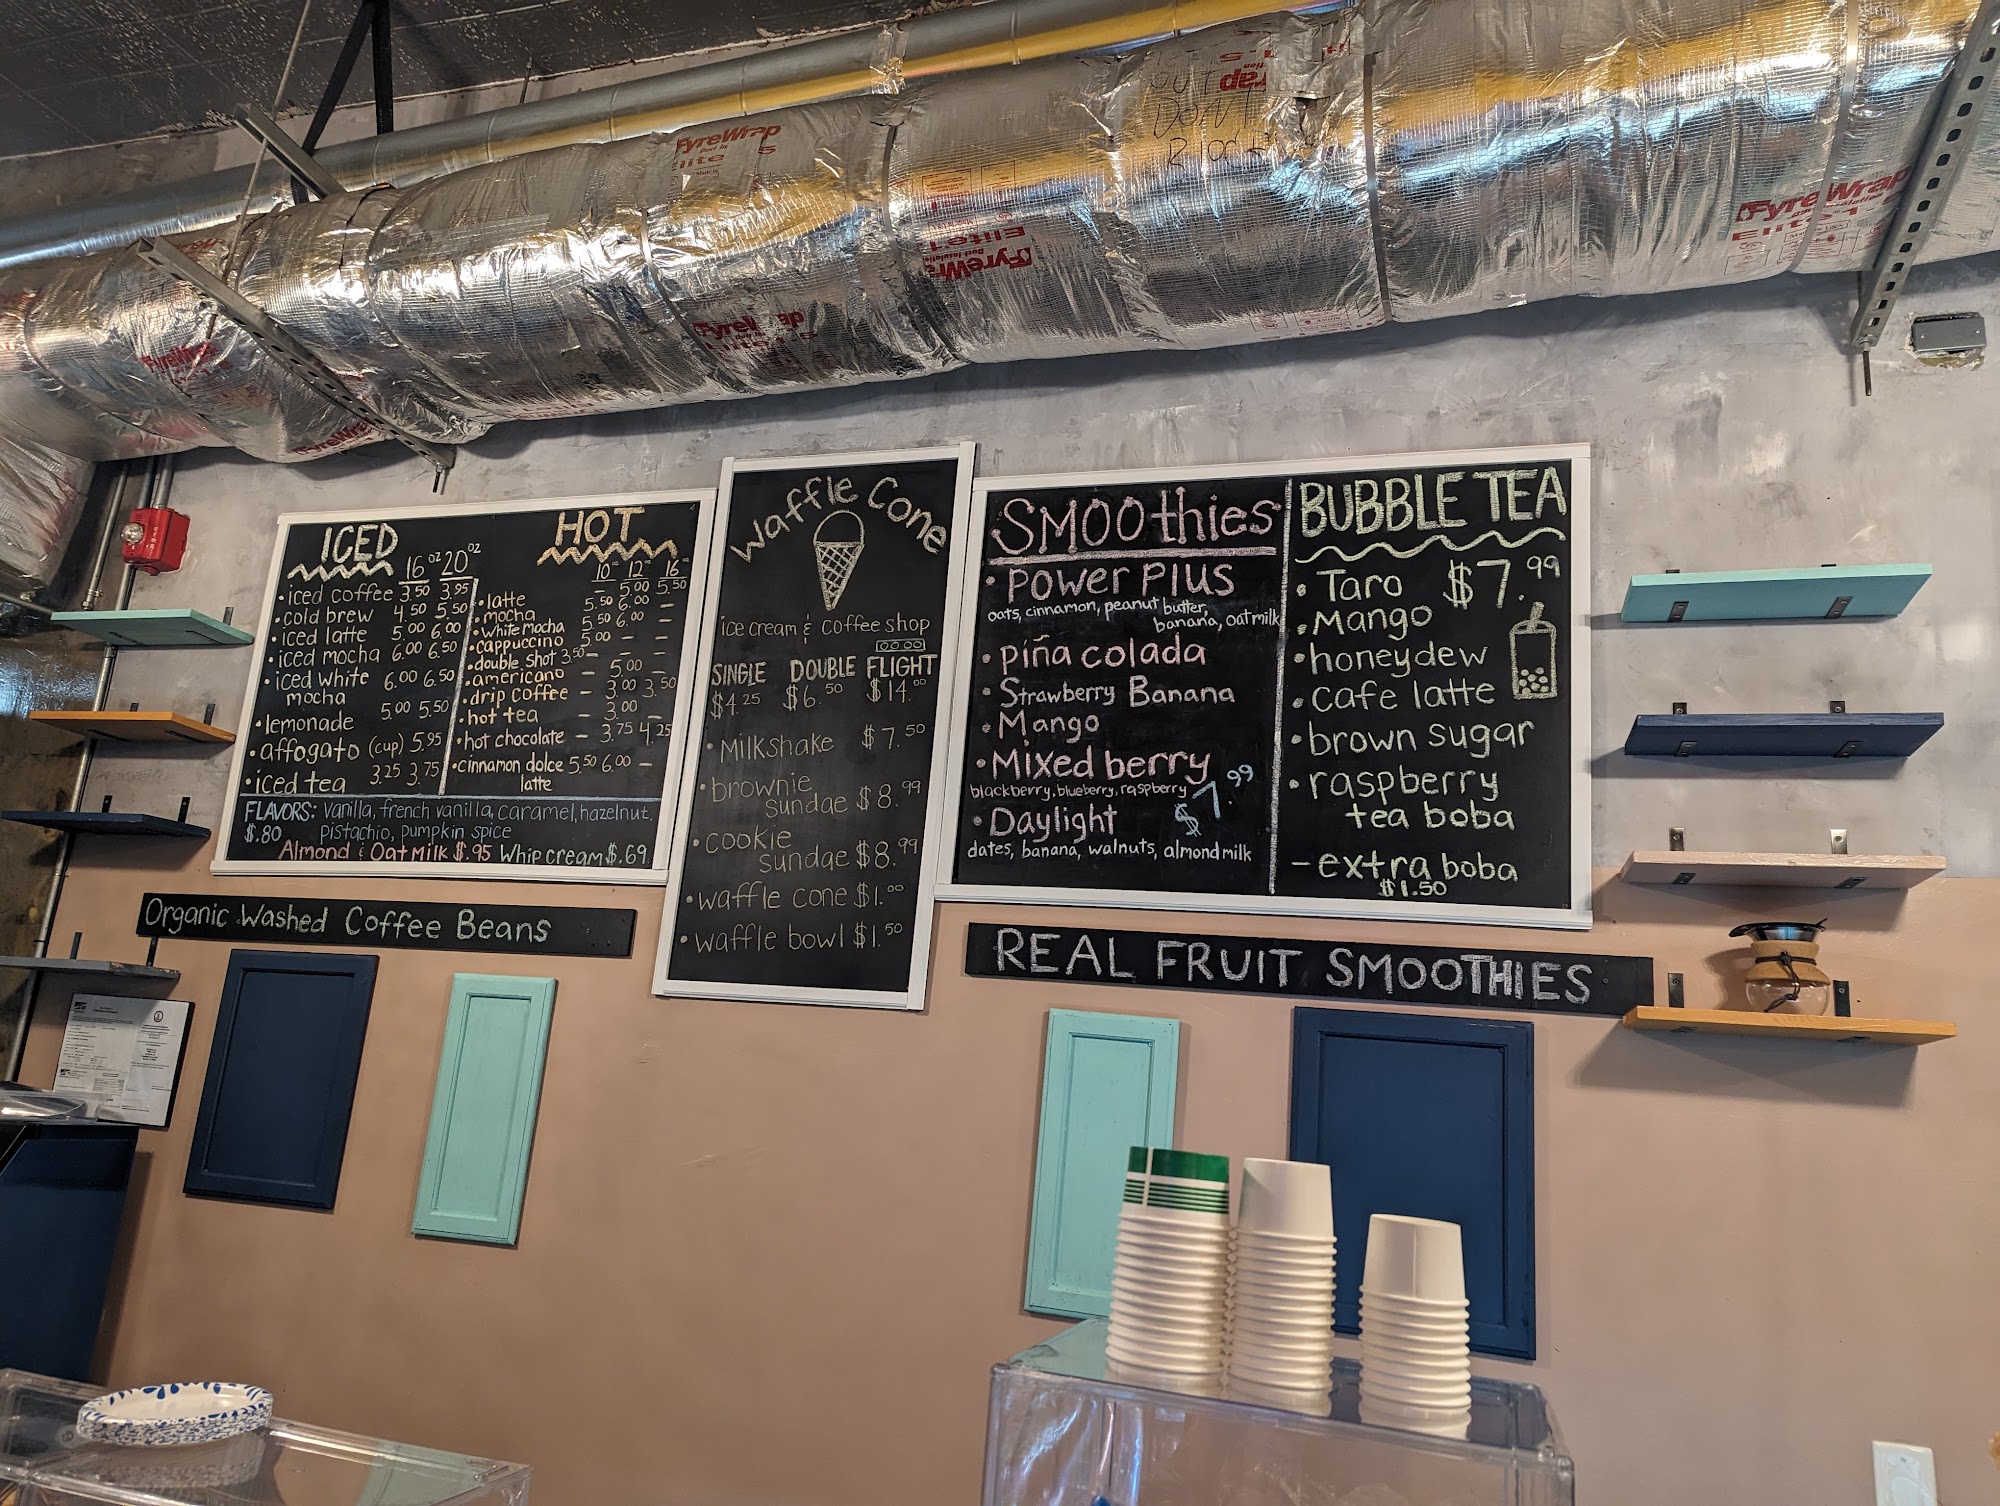 FyreWrap
Duct Insulation
Elite 1.5
OUT
DON'T
FyreWrap
Elite 1.5
FyreWrap
Elite 1.5
FyreWrap
Elite 1.5
FyreWrap
ICED
16 oz 20 oz
• iced coffee 3.50 3.95
• cold brew 4.50 5.50
• iced latte 5.00 6.00
• iced mocha 6.00 6.50
• iced white mocha 6.00 6.50
• lemonade 5.00 5.50
• affogato (cup) 5.95
• iced tea 3.25 3.75
HOT
10 12 16
• latte – 5.00 5.50
• mocha 5.50 6.00 –
• white mocha 5.50 6.00 –
• cappuccino 5.00 – –
• double shot 3.50 – –
• americano – 5.00 –
• drip coffee – 3.00 3.50
• hot tea – 3.00 –
• hot chocolate – 3.75 4.25
• cinnamon dolce 5.50 6.00 –
latte
FLAVORS: vanilla, french vanilla, caramel, hazelnut,
$.80 pistachio, pumpkin spice
Almond & Oat Milk $.95 Whip cream $.69
Organic Washed Coffee Beans
Waffle Cone
ice cream & coffee shop
SINGLE DOUBLE FLIGHT
$4.25 $6.50 $14.00
• Milkshake $7.50
• brownie
sundae $8.99
• cookie
sundae $8.99
• waffle cone $1.00
• waffle bowl $1.50
SMOOthies
• Power Plus
oats, cinnamon, peanut butter,
banana, oatmilk
• piña colada
• Strawberry Banana
• Mango
• Mixed berry
blackberry, blueberry, raspberry
$7.99
• Daylight
dates, banana, walnuts, almond milk
BUBBLE TEA
• Taro $7.99
• Mango
• honeydew
• cafe latte
• brown sugar
• raspberry
tea boba
– extra boba
$1.50
REAL FRUIT SMOOTHIES